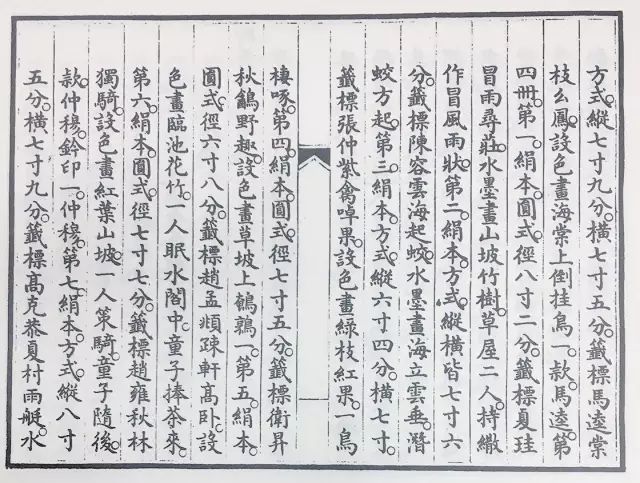 方式。縱七寸九分。橫七寸五分。籤標馬逵棠
枝幺鳳。設色畫海棠上倒挂鳥一。款馬逵。第
四冊。第一。絹本。圓式。徑八寸二分。籤標夏珪
冒雨尋莊。水墨畫山坡竹樹。草屋二人。持繖
作冒風雨狀。第二。絹本。方式。縱橫皆七寸六
分。籤標陳容雲海起蛟。水墨畫海立雲垂。潛
蛟方起。第三。絹本。方式。縱六寸四分。橫七寸。
籤標張仲紫禽啅果。設色畫綠枝紅果。一鳥
棲啄。第四。絹本。圓式。徑七寸五分。籤標衛昇
秋野趣。設色畫草坡上鵪鶉一。第五。絹本。
圓式。徑六寸八分。籤標趙孟頫疎軒高臥。設
色畫臨池花竹。一人眠水閣中。童子捧茶來。
第六。絹本。圓式。徑七寸七分。籤標趙雍秋林
獨騎。設色畫紅葉山坡。一人策騎。童子隨後。
款仲穆。鈐印一。仲穆。第七。絹本。方式。縱八寸
五分。橫七寸九分。籤標高克恭夏村雨艇。水